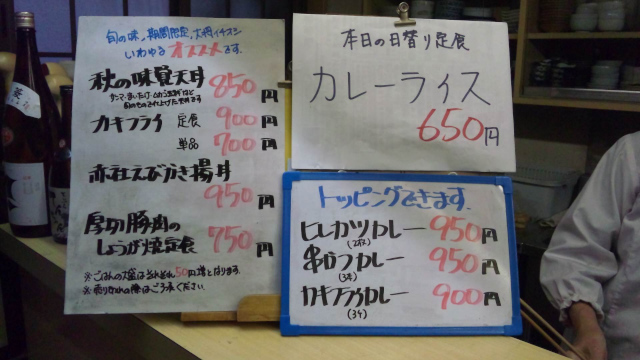 旬の味、期間限定、大将イチオシ
いわゆるオススメです。
秋の味覚天丼 850円
カキフライ 定食 900円
単品 700円
赤社えびかき揚丼
950円
厚切豚肉の
しょうが焼定食 750円
※ごはんの大盛はそれぞれ50円増となります。
※売り切れの際はごう承ください。
本日の日替り定食
カレーライス
650円
トッピングできます。
ヒレカツカレー 950円
(2枚)
串カツカレー 950円
(3本)
カキフライカレー 900円
(3ケ)